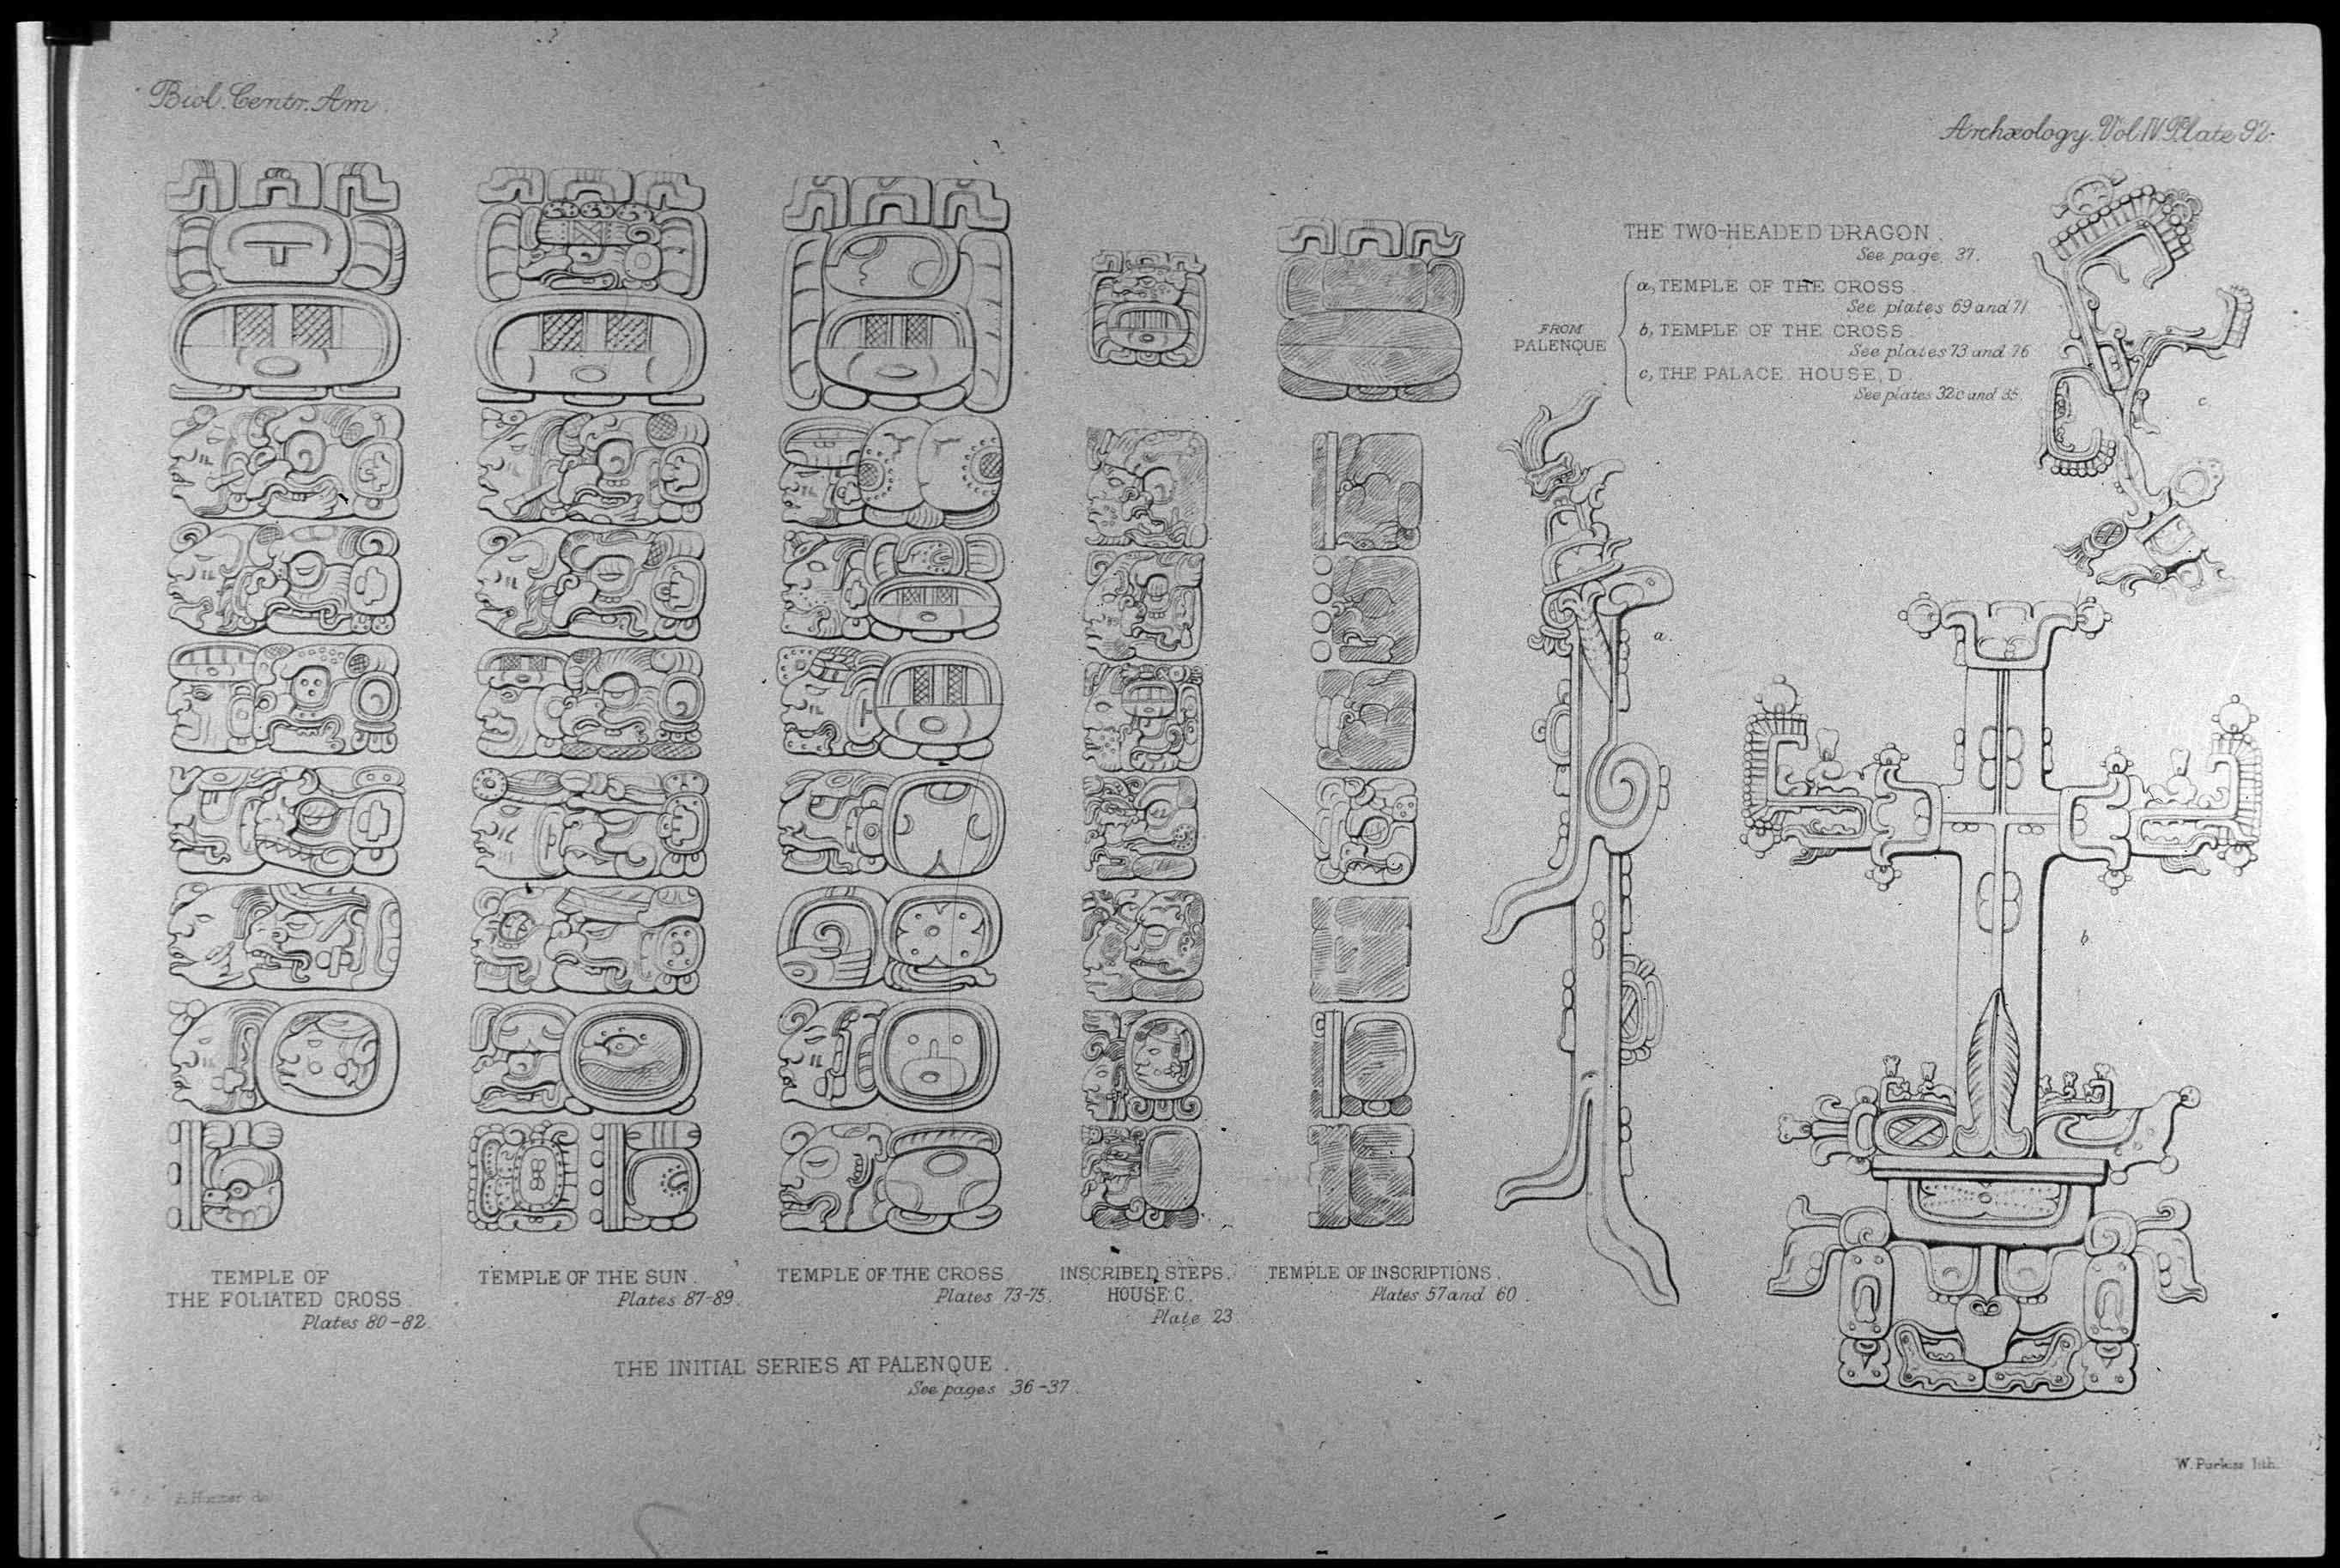 Biol. Centr. Am.
Archæology. Vol. IV. Plate 92.
THE TWO-HEADED DRAGON.
See page. 37.
FROM
PALENQUE
a, TEMPLE OF THE CROSS
See plates 69 and 71
b, TEMPLE OF THE CROSS
See plates 73 and 76
c, THE PALACE. HOUSE, D
See plates 32c and 35.
c.
a.
b
TEMPLE OF
THE FOLIATED CROSS
Plates 80-82.
TEMPLE OF THE SUN.
Plates 87-89.
TEMPLE OF THE CROSS
Plates 73-75.
INSCRIBED STEPS.
HOUSE C.
Plate 23
TEMPLE OF INSCRIPTIONS.
Plates 57 and 60.
THE INITIAL SERIES AT PALENQUE.
See pages 36-37.
Hunter
W. Purkiss lith.